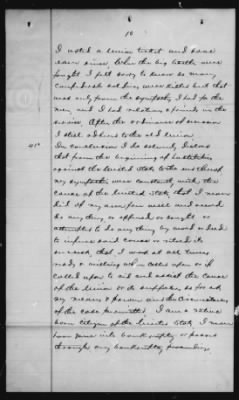 10
I voted a Union ticket and have
ever since, When the big battle were
fought I felt sorry to know so many
Confederate soldiers were killed but that
was only from the sympathy I had for the
men, and I had relatives & friends in the
service. After the ordinance of secession
I still adhered to the old Union.
41st In conclusion I do solemnly declare
that from the beginning of hostilities
against the United States to the end thereof
my sympathies were constantly with the
cause of the United States, that I never
did of my own free will and accord
do any thing or offered or sought or
attempted to do any thing by word or deed
to injure said cause or retard its
success, that I was at all times
ready & willing when called upon or if
called upon to aid and assist the cause
of the Union or its supporters so far as
my means & power and the circumstances
of the case permitted, I am a native
born citizen of the United States, I never
have gone into bankruptcy or passed
through any bankruptcy proceedings